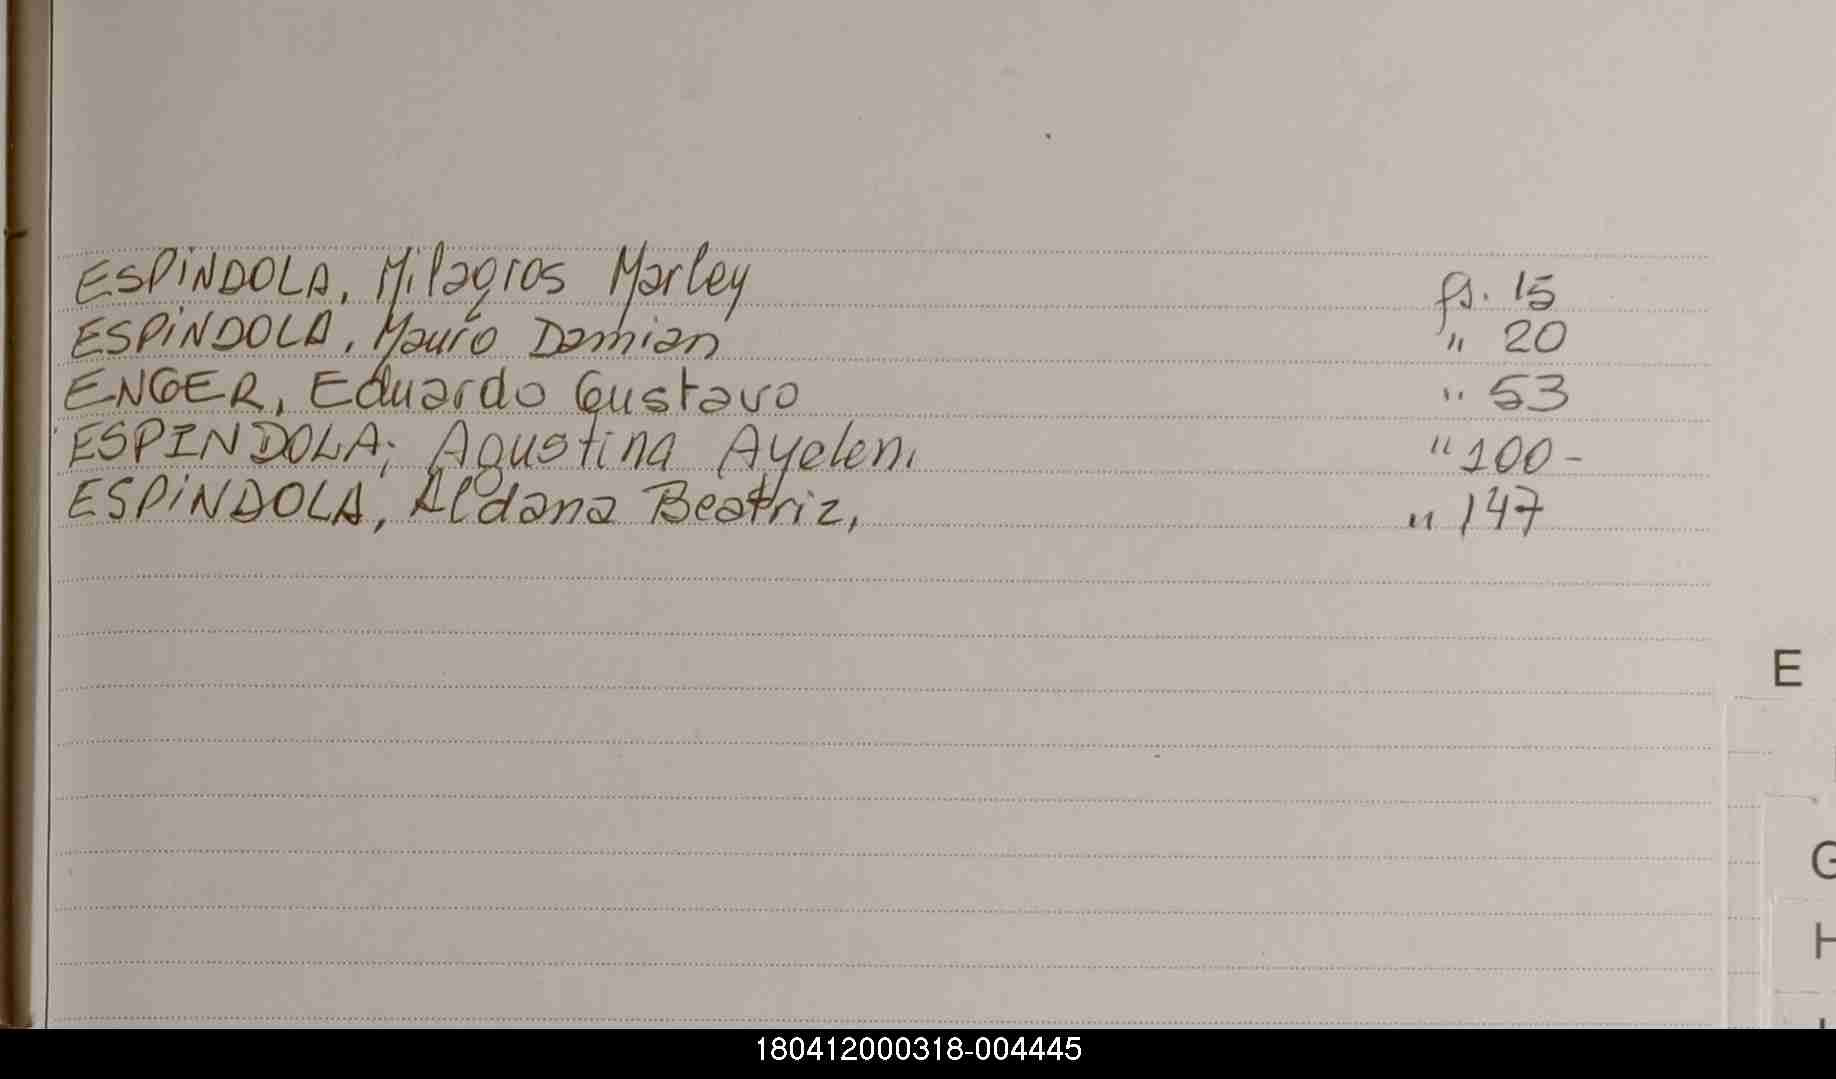 ESPINDOLA, Milagros Marley fs. 15
ESPINDOLA, Mauro Damian " 20
ENGER, Eduardo Gustavo " 53
ESPINDOLA; Agustina Ayelen, " 100 -
ESPINDOLA, Aldana Beatriz, " 147
E
G
H
180412000318-004445